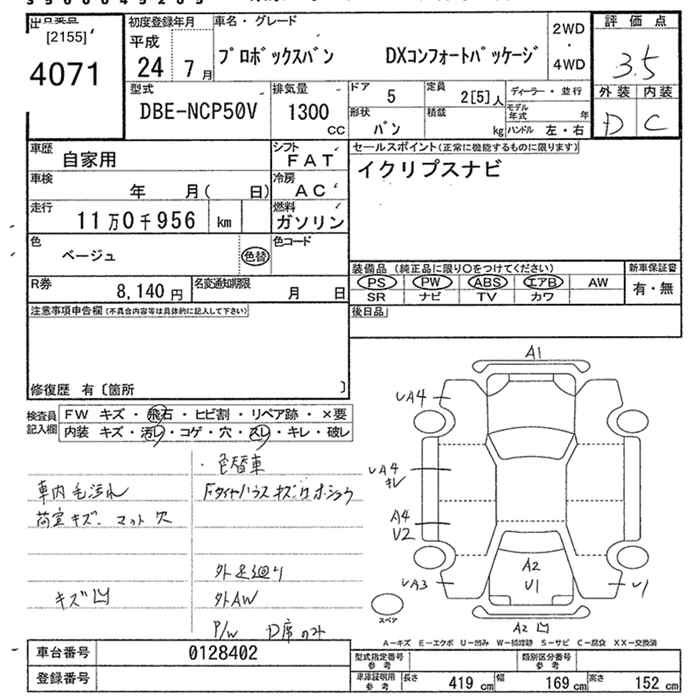 [2155]
4071
初度登録年月
平成
24 7 月
車名・グレード
プロボックスバン DXコンフォートパッケージ
2WD
・
4WD
評価点
3.5
外装 内装
D C
型式
DBE-NCP50V
排気量
1300
CC
ドア
5
定員
2[5]人
ディーラー・並行
形状
バン
積載
kg
モデル年式
年
ハンドル 左・右
車歴
自家用
シフト
FAT
セールスポイント(正常に機能するものに限ります)
イクリプスナビ
車検
年 月( 日)
冷房
AC
走行
11万0千956 km
燃料
ガソリン
色
ベージュ
色替
色コード
R券
8,140 円
名変通知期限
月 日
装備品 (純正品に限り○をつけてください)
PS PW ABS エアB AW
SR ナビ TV カワ
新車保証書
有・無
注意事項申告欄(不具合内容等は具体的に記入して下さい)
後日品
修復歴 有〔箇所 〕
検査員記入欄
FW キズ・飛石・ヒビ割・リペア跡・×要
内装 キズ・汚レ・コゲ・穴・スレ・キレ・破レ
・色替車
車内毛汚れ
荷室キズ、マット欠
キズ凹
外足廻り
外AW
P/W D席のみ
A1
UA4
UA4
キレ
A4
U2
UA3
A2
U1
U1
A2凹
スペア
A-キズ E-エクボ U-凹み W-補修跡 S-サビ C-腐食 XX-交換済
車台番号
0128402
登録番号
型式指定番号
参考
類別区分番号
参考
車庫証明用
参考
長さ 419 cm 幅 169 cm 高さ 152 cm